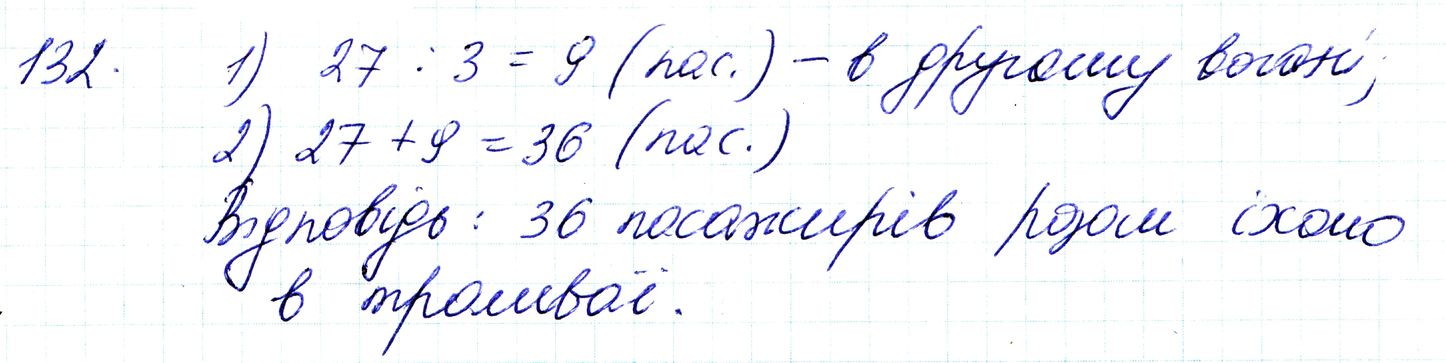 132. 1) 27 : 3 = 9 (пас.) – в другому вагоні;
2) 27 + 9 = 36 (пас.)
Відповідь: 36 пасажирів разом їхало
в трамваї.